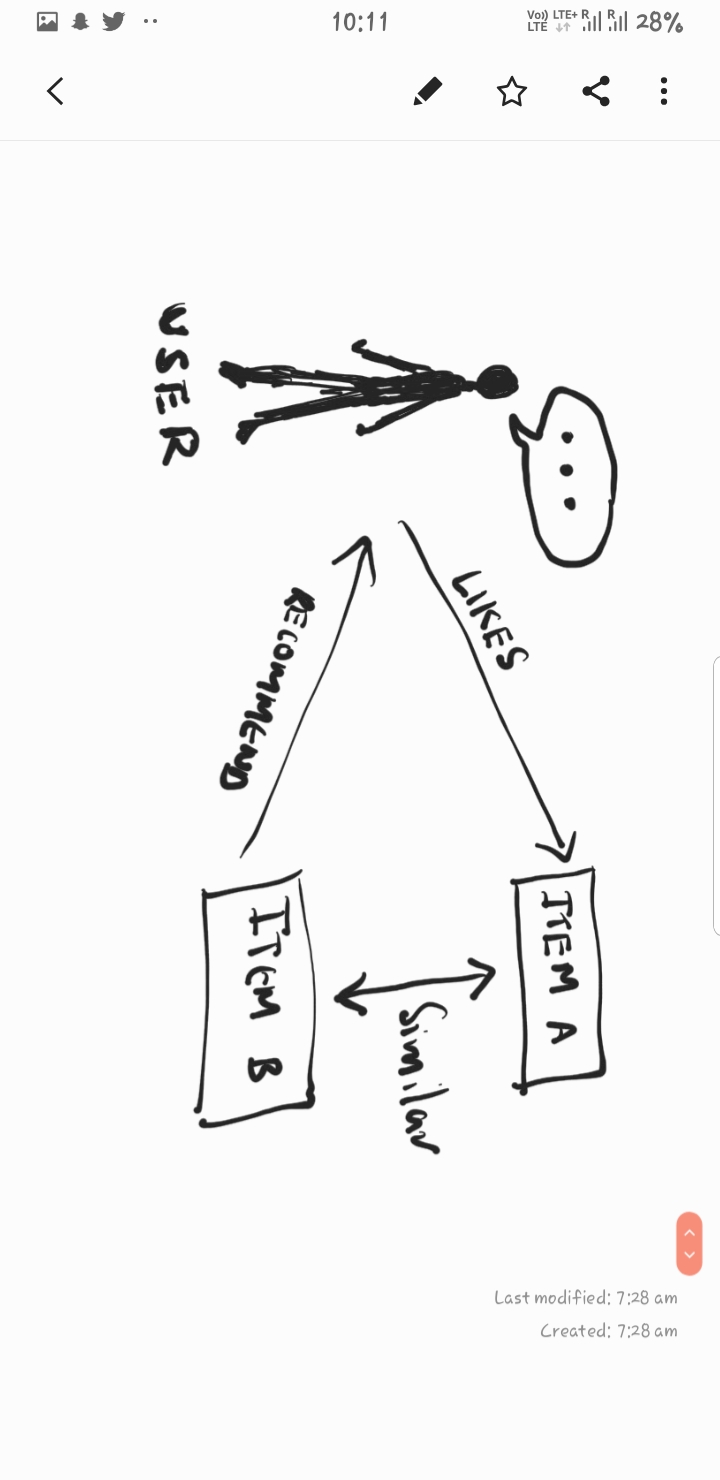 10:11
Vo)) LTE+ R R 28%
LTE
USER
LIKES
RECOMMEND
ITEM A
Similar
ITEM B
Last modified: 7:28 am
Created: 7:28 am